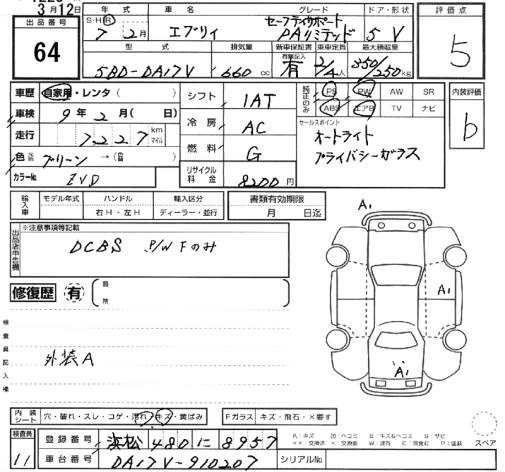 3月12日
出品番号
64
年式
S・H・R
7年2月
車名
エブリイ
グレード
セーフティサポート
PAリミテッド
ドア・形状
5 V
型式
5BD-DA17V
排気量
660 cc
新車保証書
有 記入
有
乗車定員
2/4人
最大積載量
350/250 kg
評価点
5
車歴 自家用・レンタ( )
車検 9年2月( 日)
走行 7227 km マイル
色 グリーン →( )
カラーNo. ZVD
シフト 1AT
冷房 AC
燃料 G
リサイクル料金 8200円
純正のみ
PS PW AW SR
ABS エアB TV ナビ
セールスポイント
オートライト
プライバシーガラス
内装評価
b
輸入車
モデル年式
ハンドル
右H・左H
輸入区分
ディーラー・並行
書類有効期限
月 日迄
出品店申告欄
※注意事項等記載
DCBS P/W Fのみ
修復歴 有
箇所
検査員記入欄
外装A
A1
A1
A1
内装シート 穴・破れ・スレ・コゲ・汚れ・キズ・黄ばみ
Fガラス キズ・飛石・×要す
検査員
11
登録番号 浜松 480 に 8957
車台番号 DA17V-910207
シリアルNo.
スペア